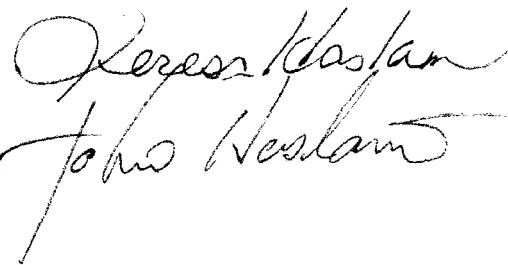 Teresa Haslam
John Haslam